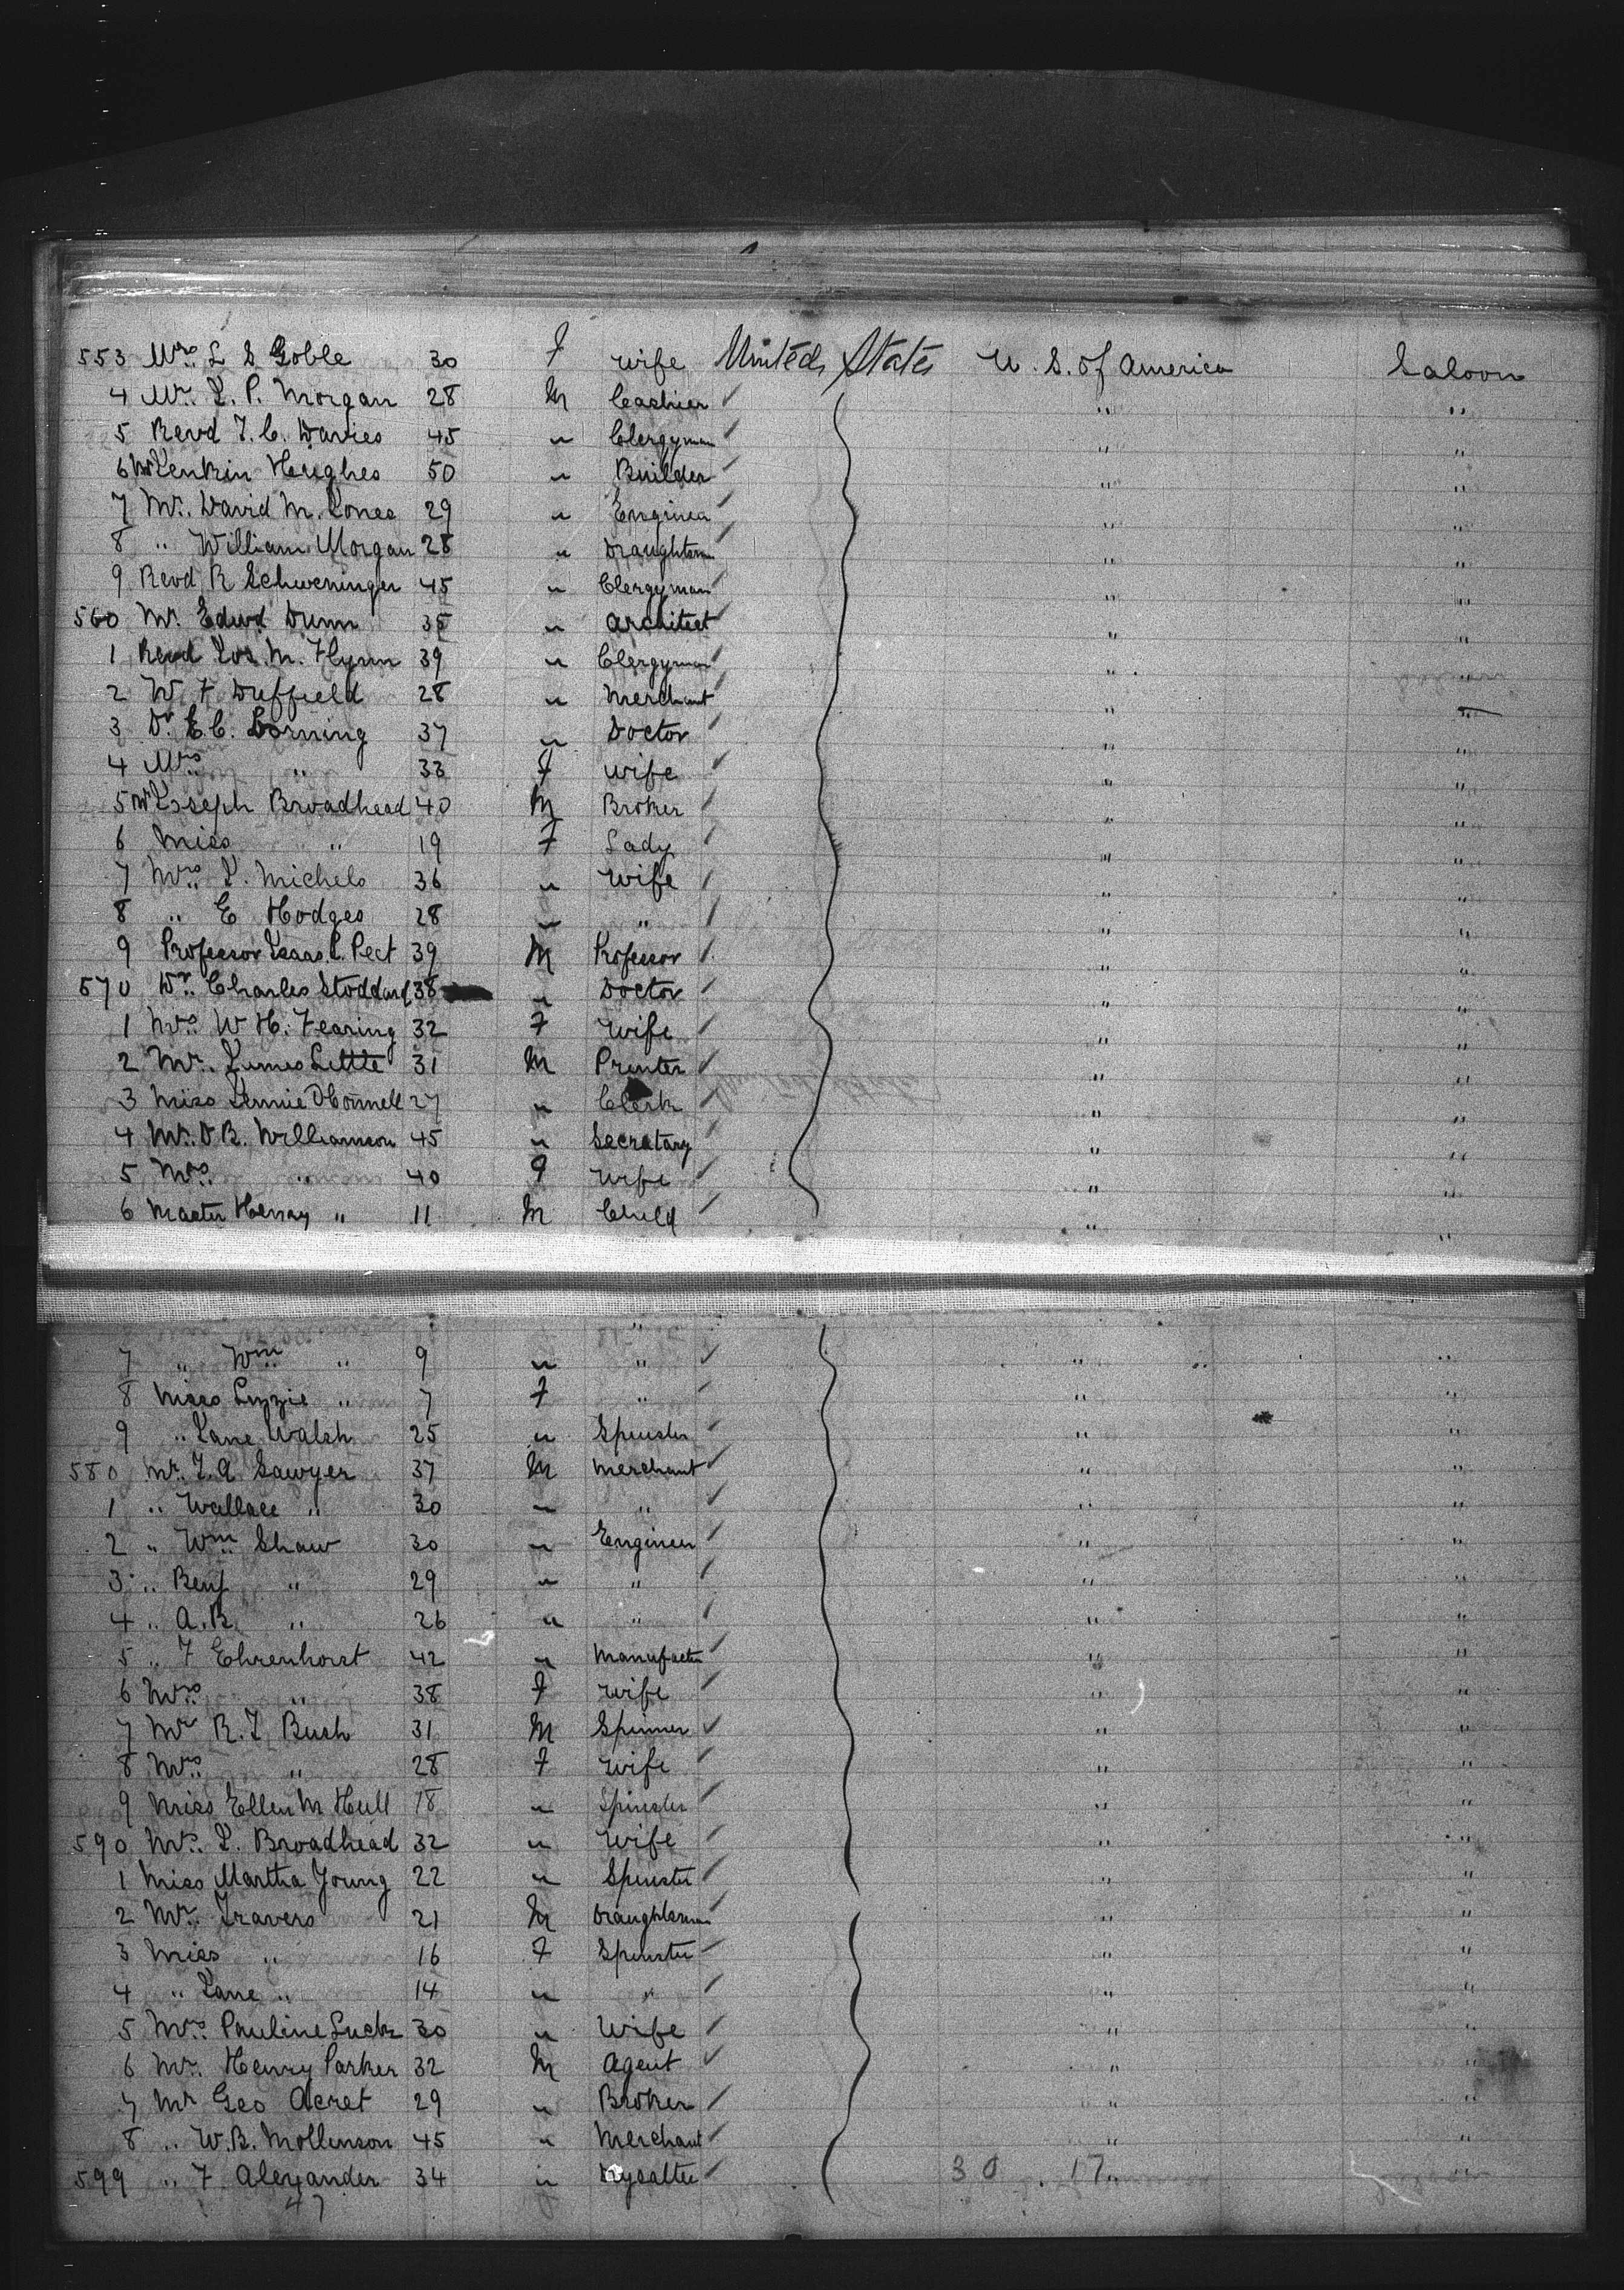 553 Mrs. L S Goble 30 F wife United States U. S. of America Saloon
4 Mr. J. P. Morgan 28 M Cashier " "
5 Revd T. C. Davies 45 " Clergyman " "
6 Mr Jenkin Hughes 50 " Builder " "
7 Mr. David M. Jones 29 " Enginee " "
8 " William Morgan 28 " Draughtsm " "
9 Revd R Schweninger 45 " Clergyman " "
560 Mr. Edwd Dunn 35 " Architect " "
1 Revd Jos. M. Flynn 39 " Clergyman " "
2 W. F Duffield 28 " Merchant " "
3 Dr. E. C. Dorning 37 " Doctor " "
4 Mrs " 33 F wife " "
5 Mr Joseph Broadhead 40 M Broker " "
6 Miss " 19 F Lady " "
7 Mrs. J. Michels 36 " Wife " "
8 " E Hodges 28 " " " "
9 Professor Isaac L. Peet 39 M Professor " "
570 Dr. Charles Stoddard 38 " Doctor " "
1 Mrs. W H. Fearing 32 F Wife " "
2 Mr. James Little 31 M Printer " "
3 Miss Jennie O'Connell 27 " Clerk " "
4 Mr. D R. Williamson 45 " Secretary " "
5 Mrs. " 40 F Wife " "
6 Master Henry " 11 M Child " "
7 " Wm " 9 " " " "
8 Miss Lizzie " 7 F " " "
9 " Jane Walsh 25 " Spinster " "
580 Mr. J. A Sawyer 37 M Merchant " "
1 " Wallace " 30 " " " "
2 " Wm Shaw 30 " Engineer " "
3 " Benj " 29 " " " "
4 " A. R. " 26 " " " "
5 " F Ehrenhorst 42 " Manufactu " "
6 Mrs " 38 F Wife " "
7 Mr R. J. Bush 31 M Spinner " "
8 Mrs " 28 F Wife " "
9 Miss Ellen M Hull 18 " Spinster " "
590 Mrs. J. Broadhead 32 " Wife " "
1 Miss Martha Young 22 " Spinster " "
2 Mr. Travers 21 M Draughtsman " "
3 Miss " 16 F Spinster " "
4 " Jane " 14 " " " "
5 Mrs. Pauline Luck 30 " Wife " "
6 Mr. Henry Parker 32 M Agent " "
7 Mr Geo Acret 29 " Broker " "
8 " W. B. Mollinson 45 " Merchant " "
599 " F Alexander 34 " Drysalter 30 . 17 "
47